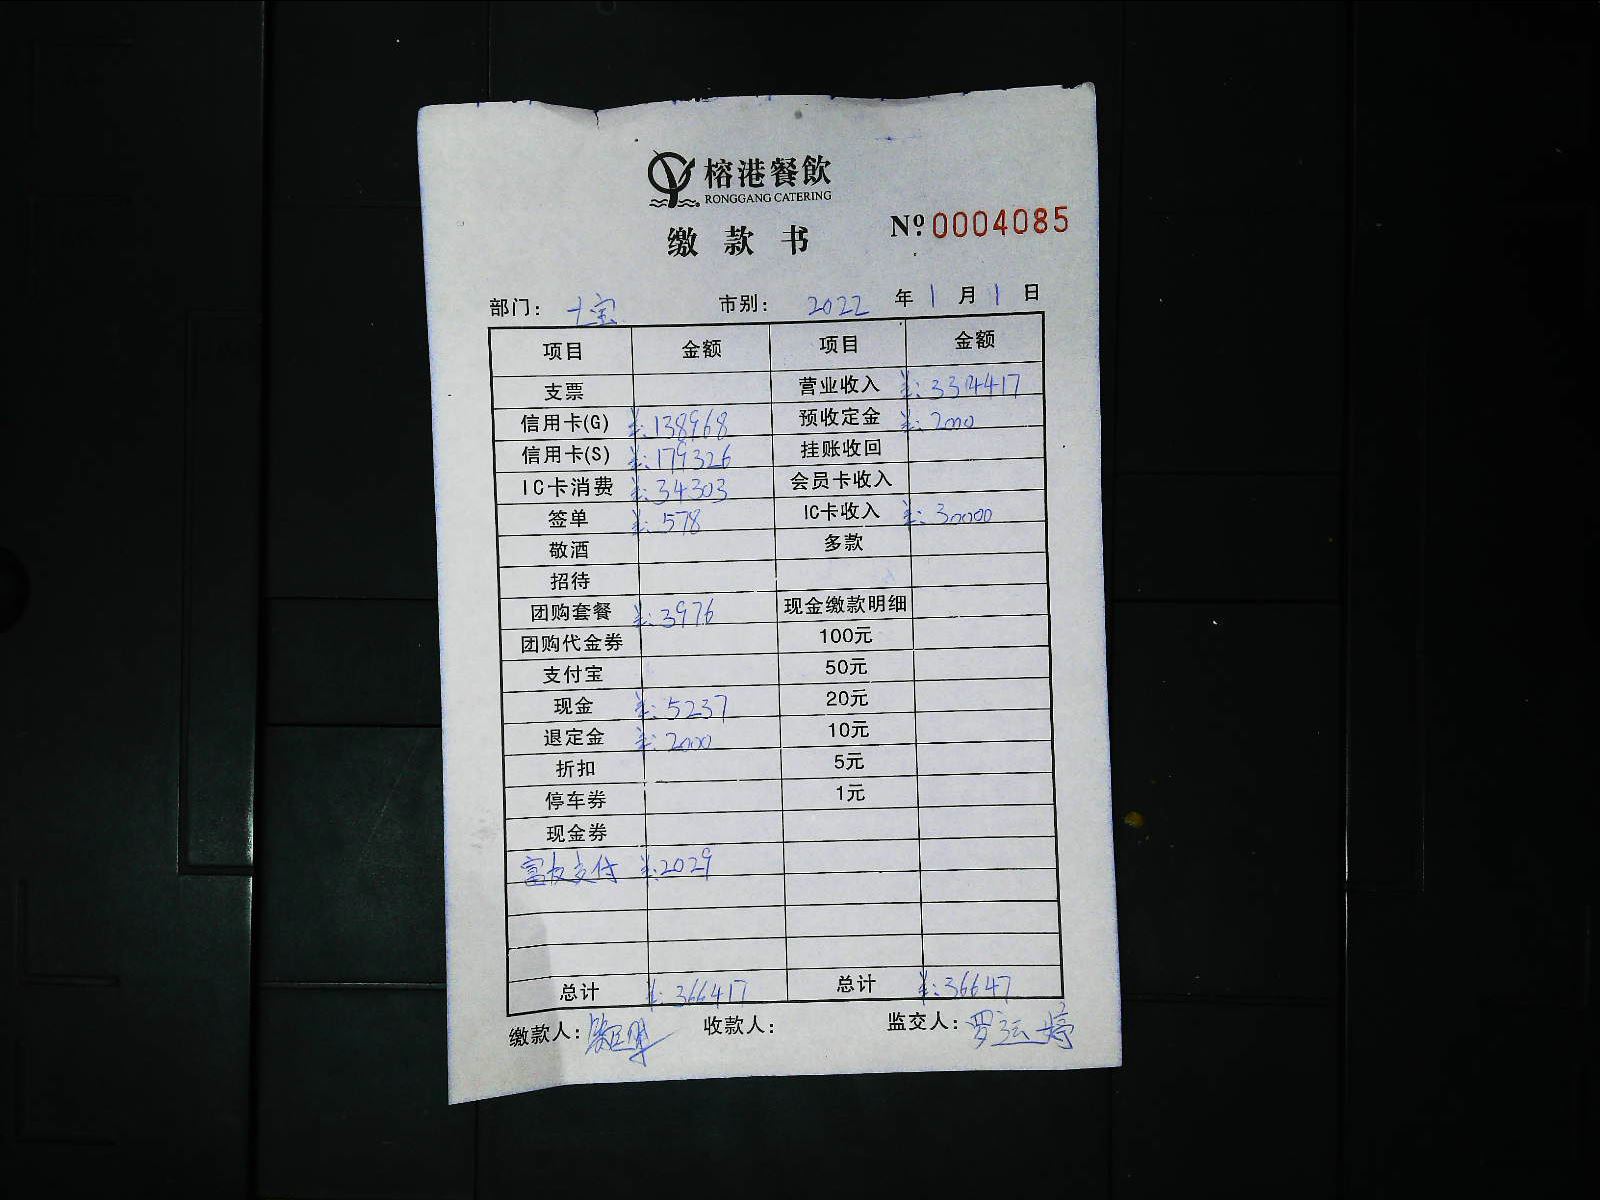 榕港餐飲
RONGGANG CATERING
缴款书
Nº 0004085
部门: 七宝 市别: 2022 年 1 月 1 日
项目 金额 项目 金额
支票 营业收入 ¥:334417
信用卡(G) ¥:138968 预收定金 ¥:2000
信用卡(S) ¥:179326 挂账收回
IC卡消费 ¥:34303 会员卡收入
签单 ¥:578 IC卡收入 ¥:30000
敬酒 多款
招待
团购套餐 ¥:3976 现金缴款明细
团购代金券 100元
支付宝 50元
现金 ¥:5237 20元
退定金 ¥:2000 10元
折扣 5元
停车券 1元
现金券
富友支付 ¥:2029
总计 ¥:366417 总计 ¥:36647
缴款人: 收款人: 监交人: 罗运婷